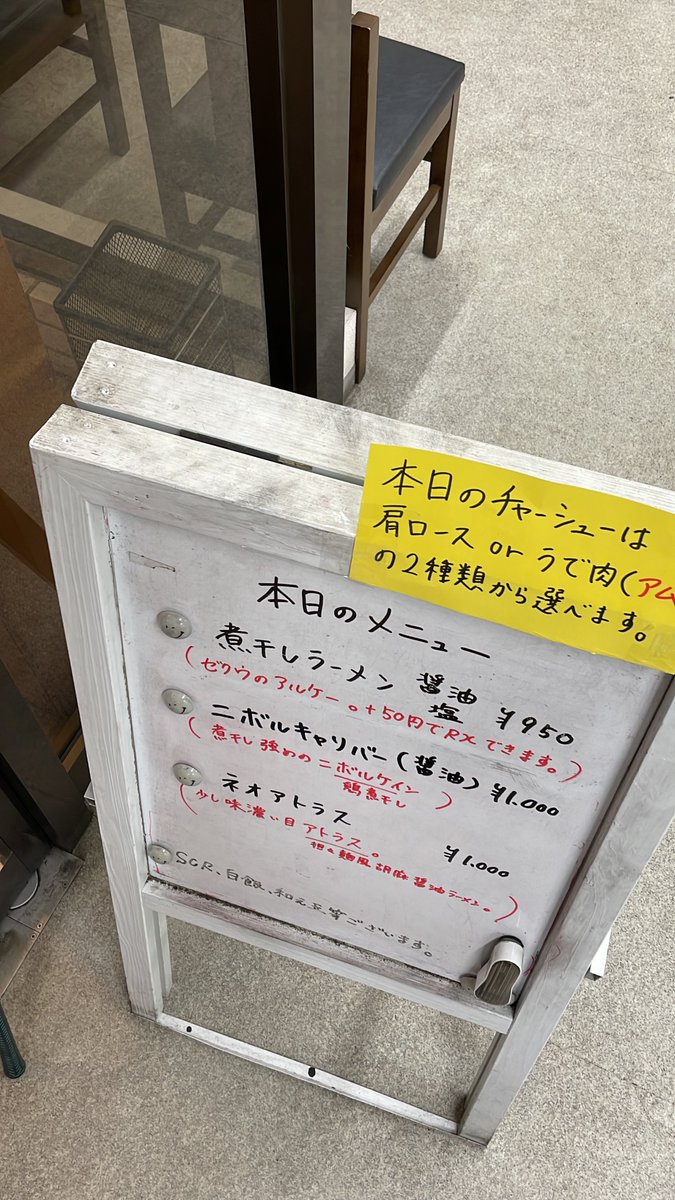 本日のチャーシューは
肩ロース or うで肉(アム
の2種類から選べます。
本日のメニュー
煮干しラーメン 醤油 塩 ¥950
(ゼクウのアルケー。+50円でRXできます。)
ニボルキャリバー(醤油) ¥1.000
(煮干し強めのニボルケイン)
鶏煮干し
ネオアトラス ¥1.000
(少し味濃い目アトラス。
担々麺風胡麻醤油ラーメン。)
SGR、白銀、和え玉等ございます。